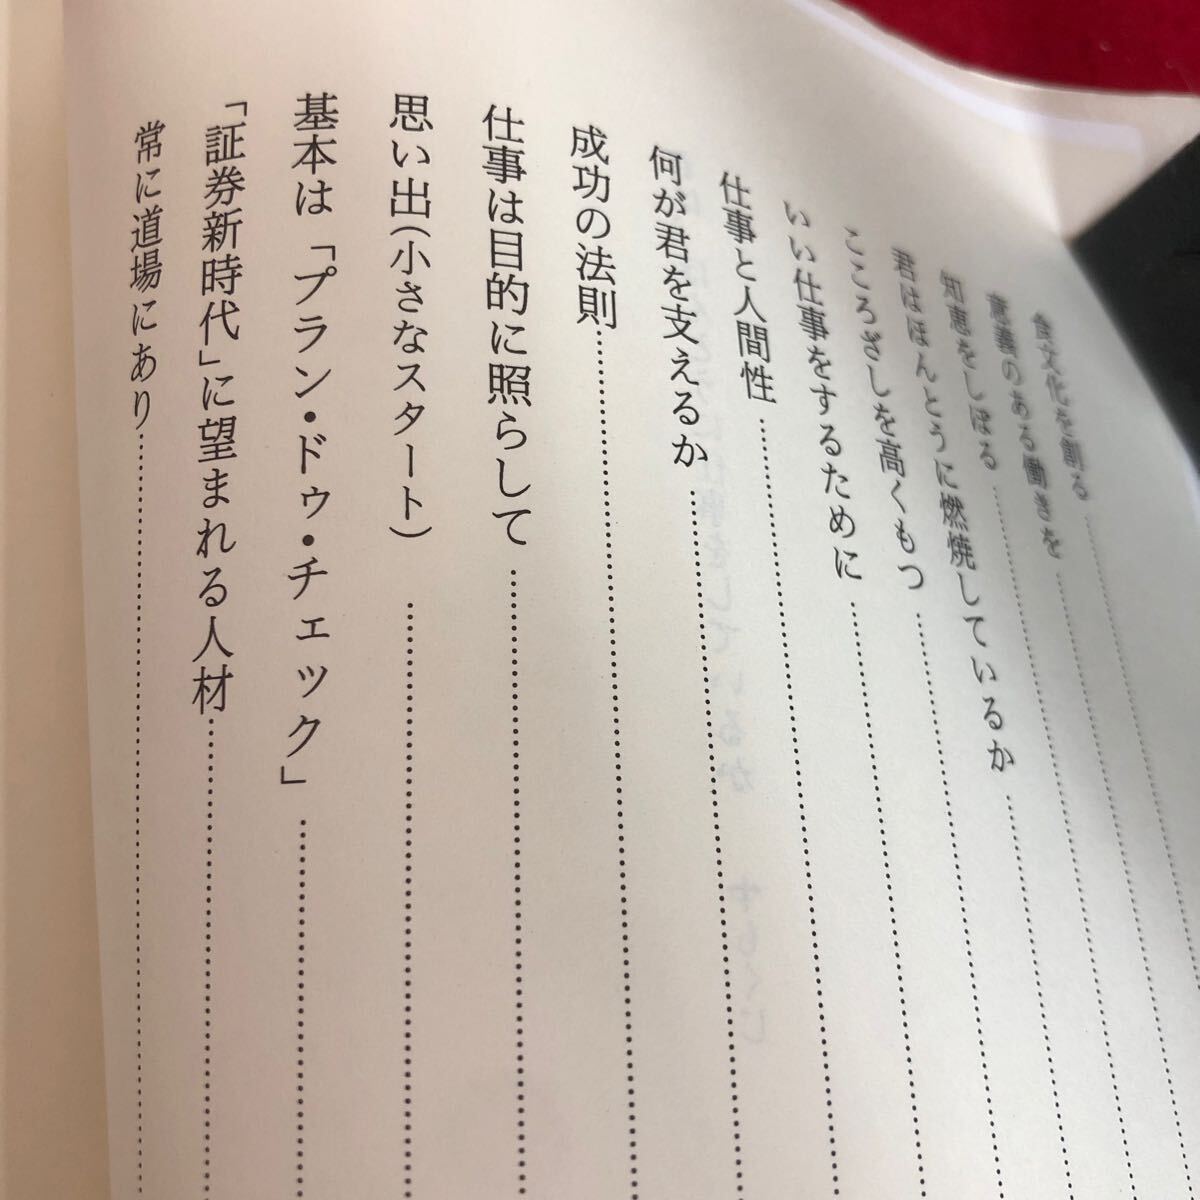 食文化を創る
意義のある働きを
知恵をしぼる
君はほんとうに燃焼しているか
こころざしを高くもつ
いい仕事をするために
仕事と人間性
何が君を支えるか
成功の法則
仕事は目的に照らして
思い出(小さなスタート)
基本は「プラン・ドゥ・チェック」
「証券新時代」に望まれる人材
常に道場にあり